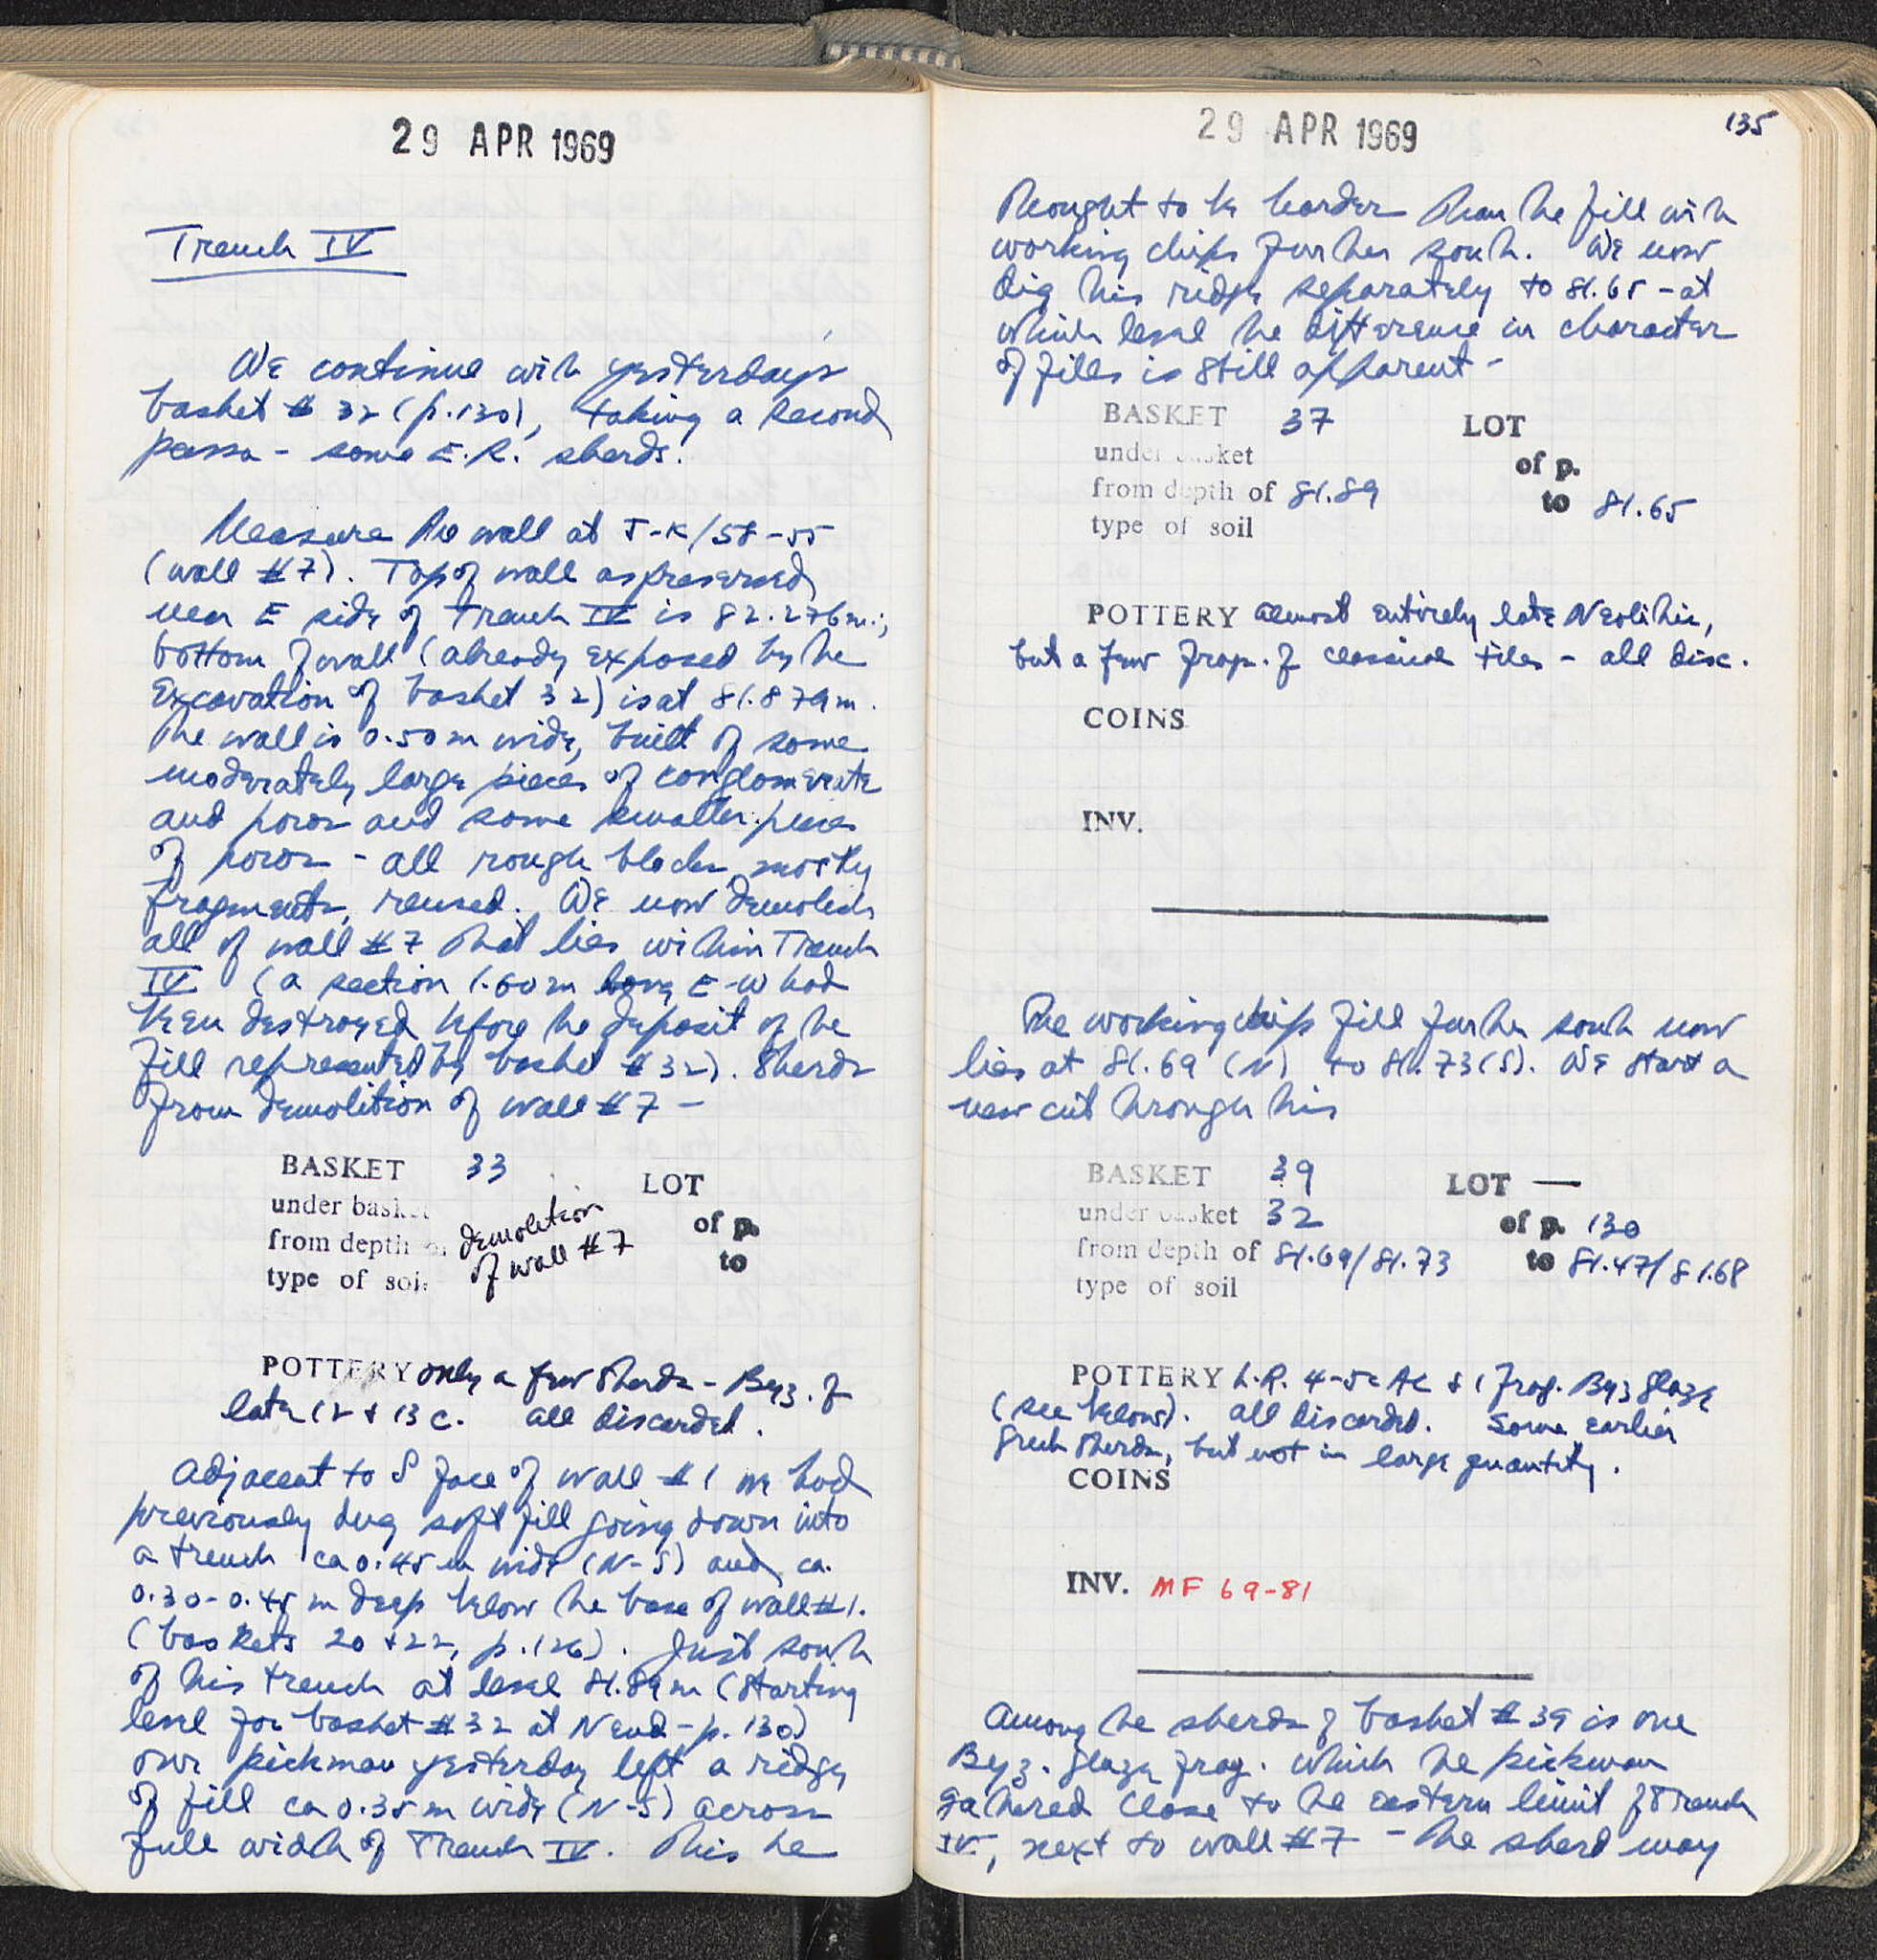 29 APR 1969
Trench IV
We continue with yesterday's
basket # 32 (p. 130), taking a second
passa - some E.R. sherds.
Measure the wall at J-K/58-55
(wall #7). Top of wall as preserved
near E side of trench IV is 82.276 m.;
bottom of wall (already exposed by the
excavation of basket 32) is at 81.879 m.
The wall is 0.50 m wide, built of some
moderately large pieces of conglomerate
and poros and some smaller pieces
of poros - all rough blocks, mostly
fragments, reused. We now demolish
all of wall #7 that lies within Trench
IV (a section 1.60 m long E-W had
been destroyed before the deposit of the
fill represented by basket #32). Sherds
from demolition of wall #7 -
BASKET 33 LOT
under basket
from depth of demolition of p.
type of soil of wall #7 to
POTTERY only a few sherds - Byz. of
late 12 & 13 c. all discarded.
Adjacent to S face of wall #1 we had
previously dug soft fill going down into
a trench ca 0.45 m wide (N-S) and ca.
0.30-0.45 m deep below the base of wall #1.
(baskets 20 + 22, p. 126). Just south
of this trench at level 81.89 m (starting
level for basket #32 at N end - p. 130)
our pickman yesterday left a ridge
of fill ca 0.35 m wide (N-S) across
full width of Trench IV. This he
29 APR 1969
135
thought to be harder than the fill with
working chips further south. We now
dig this ridge separately to 81.65 - at
which level the difference in character
of fills is still apparent -
BASKET 37 LOT
under basket of p.
from depth of 81.89 to 81.65
type of soil
POTTERY almost entirely late Neolithic,
but a few frags. of classical tiles - all disc.
COINS
INV.
The working chips fill further south now
lies at 81.69 (N) to 81.73 (S). We start a
new cut through this
BASKET 39 LOT —
under basket 32 of p. 130
from depth of 81.69/81.73 to 81.47/81.68
type of soil
POTTERY L.R. 4-5c AC & 1 frag. Byz glaze
(see below). all discarded. Some earlier
Greek sherds, but not in large quantity.
COINS
INV. MF 69-81
Among the sherds of basket #39 is one
Byz. glaze frag. which the pickman
gathered close to the eastern limit of Trench
IV, next to wall #7 - the sherd may